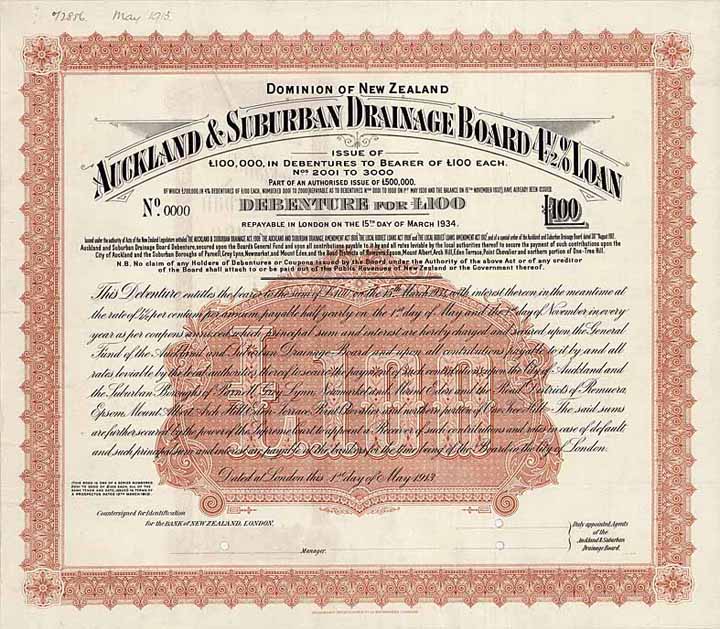 72806 May 1913.
DOMINION OF NEW ZEALAND
AUCKLAND & SUBURBAN DRAINAGE BOARD 4½% LOAN
ISSUE OF
£100,000, IN DEBENTURES TO BEARER OF £100 EACH.
Nos 2001 TO 3000
PART OF AN AUTHORISED ISSUE OF £500,000.
OF WHICH £200,000 IN 4% DEBENTURES OF £100 EACH, NUMBERED 0001 TO 2000 (REPAYABLE AS TO DEBENTURES Nos 0001 TO 1000 ON 1st MAY 1930 AND THE BALANCE IN 15th NOVEMBER 1932) HAVE ALREADY BEEN ISSUED.
No. 0000 DEBENTURE FOR £100 £100
REPAYABLE IN LONDON ON THE 15TH DAY OF MARCH 1934.
Issued under the authority of Acts of the New Zealand Legislature entitled "THE AUCKLAND AND SUBURBAN DRAINAGE ACT 1908," THE AUCKLAND AND SUBURBAN DRAINAGE AMENDMENT ACT "THE LOCAL BODIES' LOANS ACT 1908" and "THE LOCAL BODIES' LOANS AMENDMENT ACT" and of a special order of the Auckland and Suburban Drainage Board dated 30th August 1912.
Auckland and Suburban Drainage Board Debenture, secured upon the Board's General Fund and upon all contributions payable to it by and all rates leviable by the local authorities thereof to secure the payment of such contributions upon the
City of Auckland and the Suburban Boroughs of Parnell, Grey Lynn, Newmarket, and Mount Eden, and the Road Districts of Remuera, Epsom, Mount Albert, Arch Hill, Eden Terrace, Point Chevalier and northern portion of One-Tree Hill.
N.B. No claim of any Holders of Debentures or Coupons issued by the Board under the Authority of the above Act or of any creditor
of the Board shall attach to or be paid out of the Public Revenues of New Zealand or the Government thereof.
This Debenture entitles the bearer to the sum of £100 on the 15th March 1934 with interest thereon in the meantime at
the rate of 4½ per centum per annum, payable half yearly on the 1st day of May and the 1st day of November in every
year as per coupons annexed which principal sum and interest are hereby charged and secured upon the General
Fund of the Auckland and Suburban Drainage Board and upon all contributions payable to it by and all
rates leviable by the local authorities thereof to secure the payment of such contributions upon the City of Auckland and
the Suburban Boroughs of Parnell, Grey Lynn, Newmarket and Mount Eden and the Road Districts of Remuera,
Epsom, Mount Albert, Arch Hill, Eden Terrace, Point Chevalier and northern portion of One Tree Hill. The said sums
are further secured by the power of the Supreme Court to appoint a Receiver of such contributions and rates in case of default,
and such principal sum and interest are payable at the bankers for the time being of the Board in the City of London.
£100
Dated at London this 1st day of May 1913
(THIS BOND IS ONE OF A SERIES NUMBERED
2001 TO 3000 OF £100 EACH, ALL OF THE
SAME TENOR AND DATE, ISSUED IN TERMS OF
A PROSPECTUS DATED 12TH MARCH 1913).
Countersigned for Identification
for the BANK OF NEW ZEALAND, LONDON.
Manager.
Duly appointed Agents
of the
Auckland & Suburban
Drainage Board.